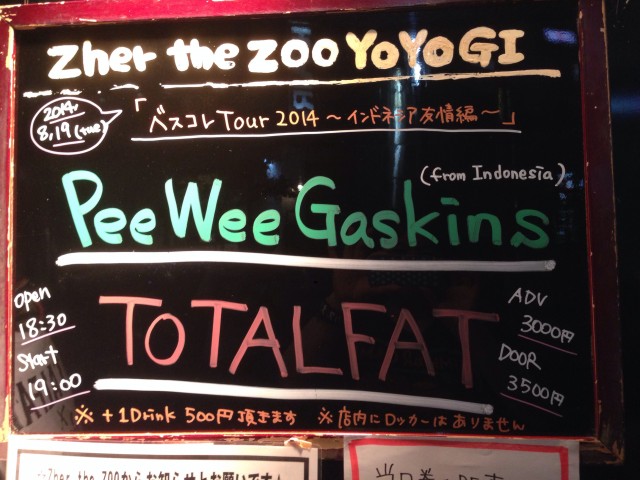 Zher the ZOO YoYoGI
2014
8,19(tue)
「ベスコレTour 2014～インドネシア友情編～」
(from Indonesia)
Pee Wee Gaskins
Open
18:30
Start
19:00
ToTALFAT
ADV
3000円
DOOR
3500円
※ +1Drink 500円頂きます ※店内にロッカーはありません
Zher the ZOOからお知らせとお願いです